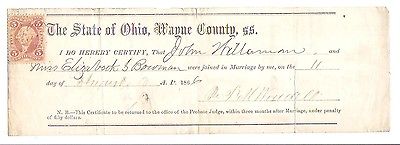 The State of Ohio, Wayne County, ss.
I DO HEREBY CERTIFY, That John Willaman and
Miss Elizabeth S Bowman were joined in Marriage by me, on the 11
day of A. D. 186
N. B.—This Certificate to be returned to the office of the Probate Judge, within three months after Marriage, under penalty
of fifty dollars.